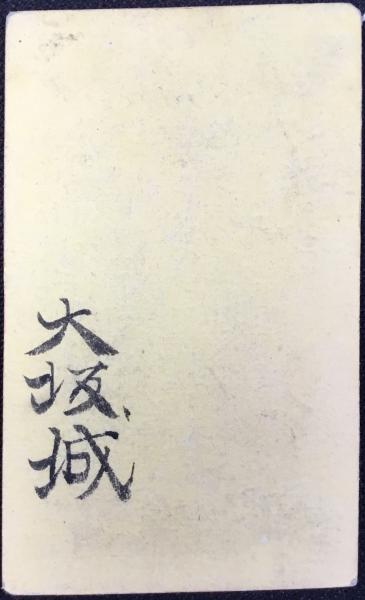 大坂城